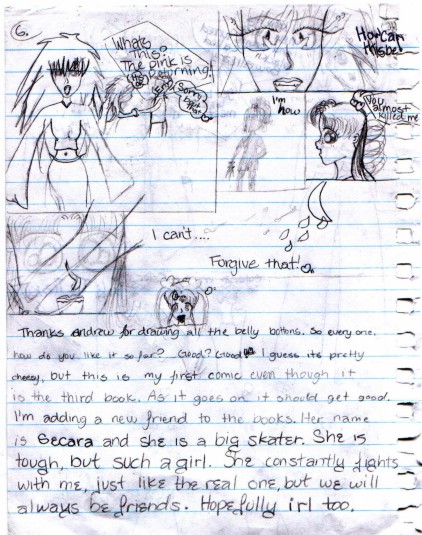 6.
What's
This?
The pink is
returning!
Sorry
How Can
this be!
I'm
now
You
almost
killed me
I can't....
Forgive that!
Thanks Andrew for drawing all the belly bottons. So every one,
how do you like it so far? Good? Good I guess its pretty
cheesy, but this is my first comic even though it
is the third book. As it goes on it should get good.
I'm adding a new friend to the books. Her name
is Secara and she is a big skater. She is
tough, but such a girl. She constantly fights
with me, just like the real one, but we will
always be friends. Hopefully irl too.